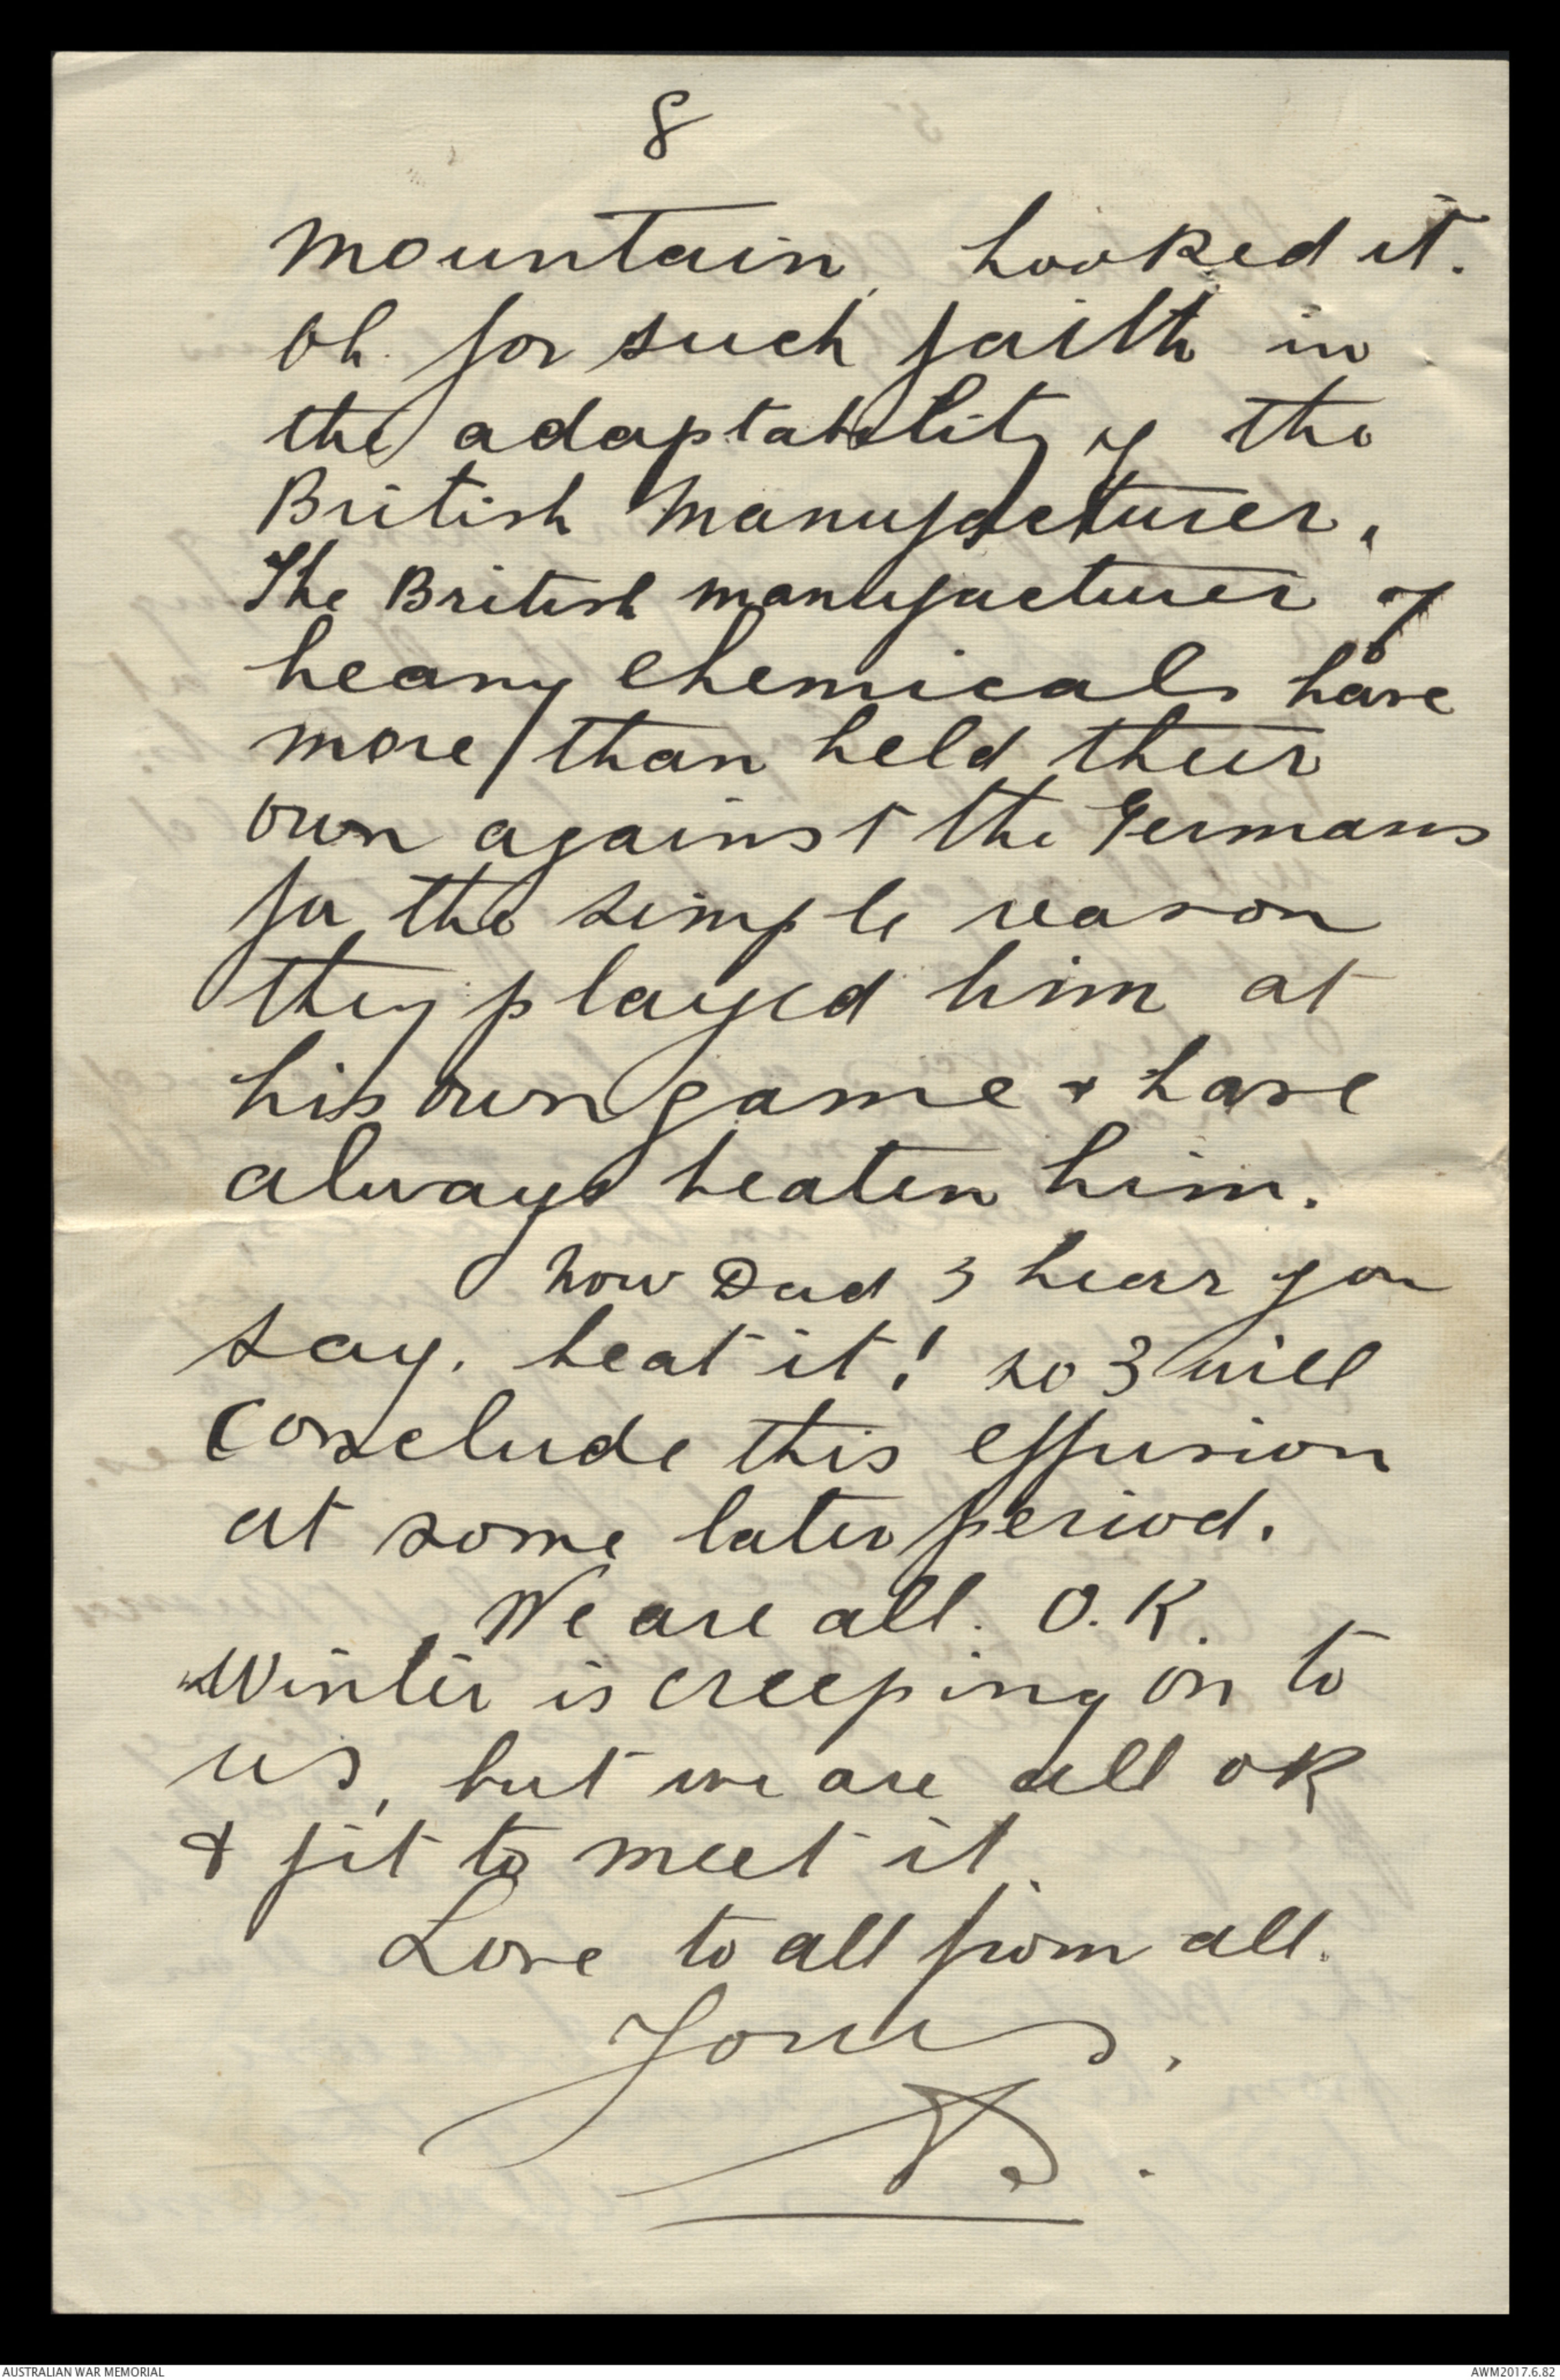 8
mountain, hooked it.
Oh for such faith in
the adaptability of the
British Manufacturer.
The British manufacturer of
heavy chemicals have
more than held their
own against the Germans
for the simple reason
they played him at
his own game & have
always beaten him.
Now Dad I hear you
say, beat it! so I will
conclude this effusion
at some later period.
We are all. O.K.
Winter is creeping on to
us, but we are all OK
& fit to meet it.
Love to all from all.
Yours,
AUSTRALIAN WAR MEMORIAL
AWM2017.6.82